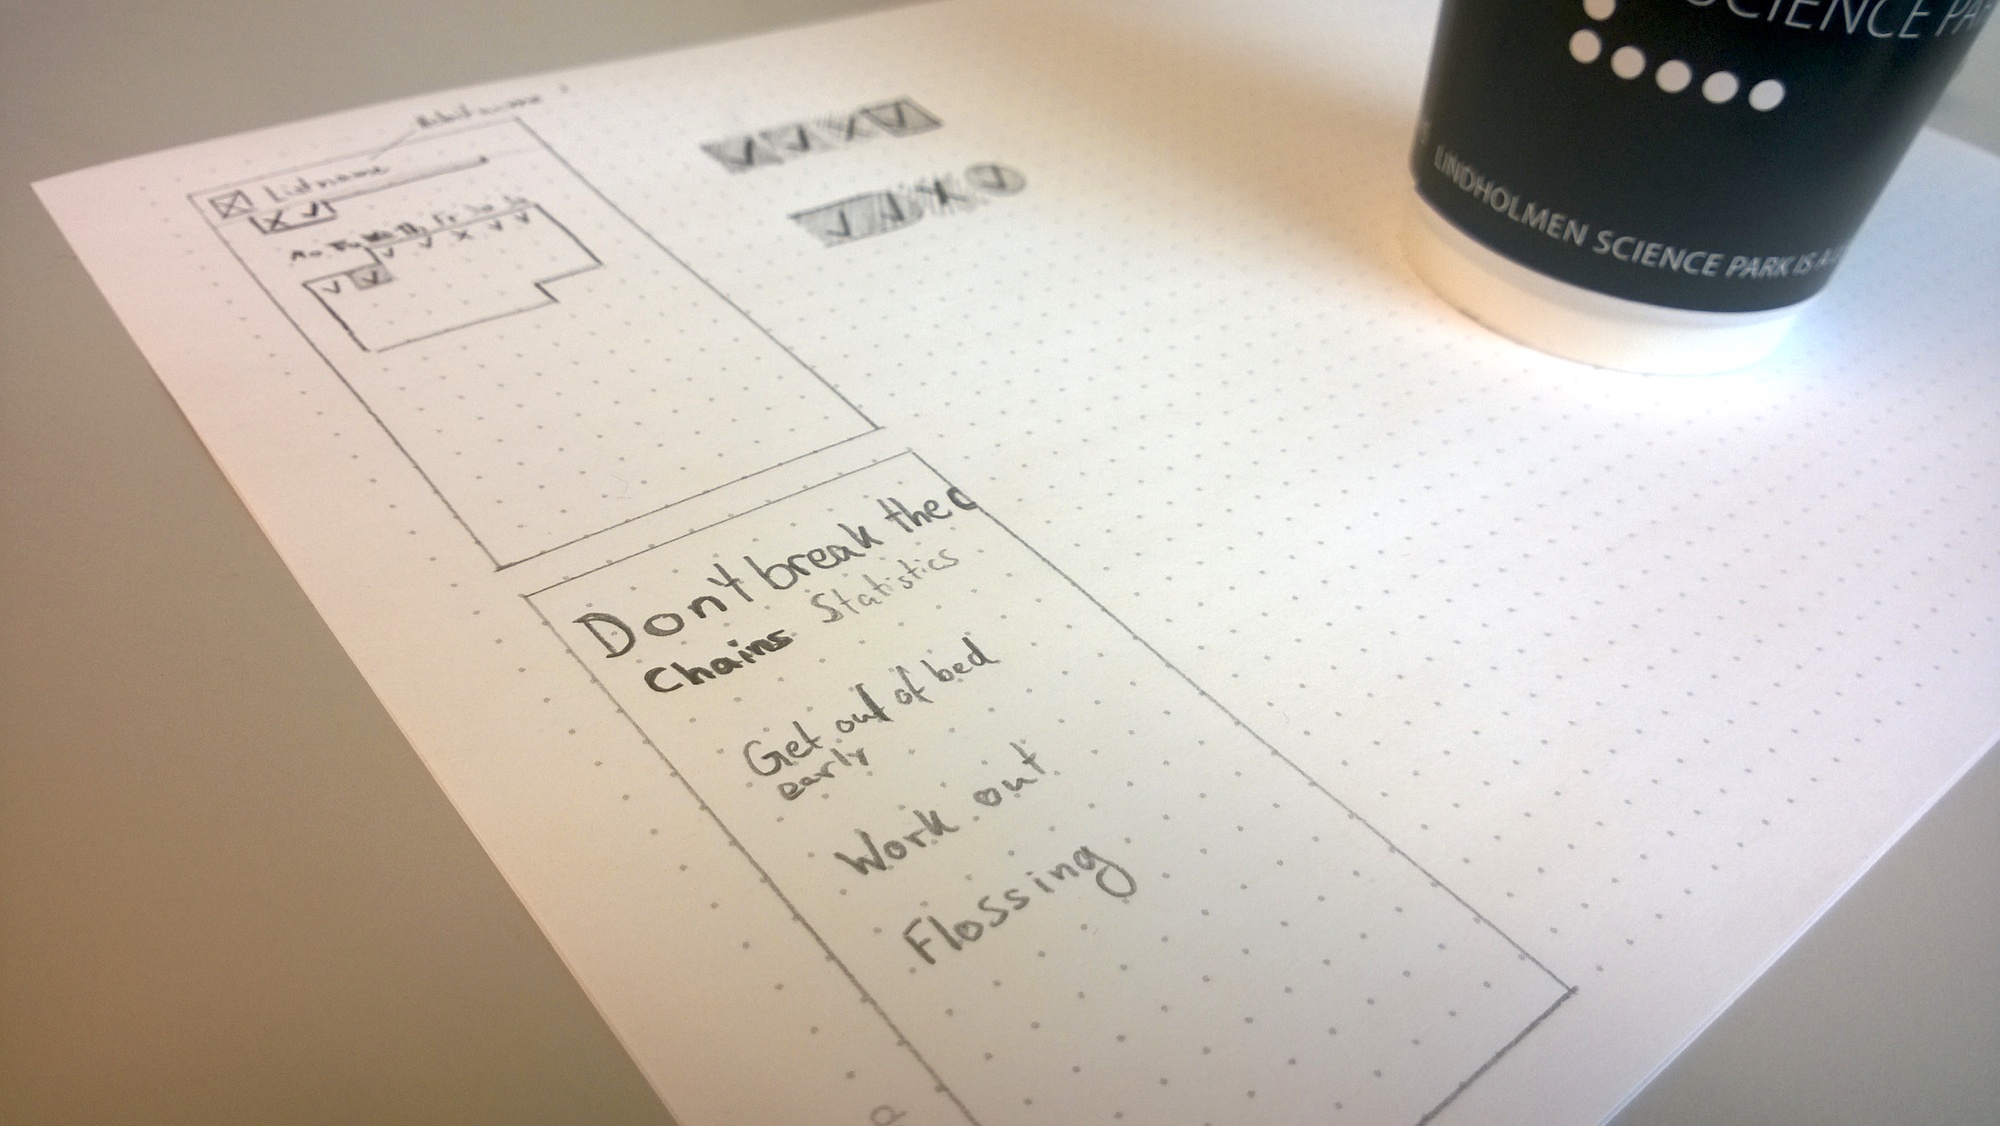 Listname
Don't break the c
Chains Statistics
Get out of bed
early
Work out
Flossing
SCIENCE PA
LINDHOLMEN SCIENCE PARK IS A